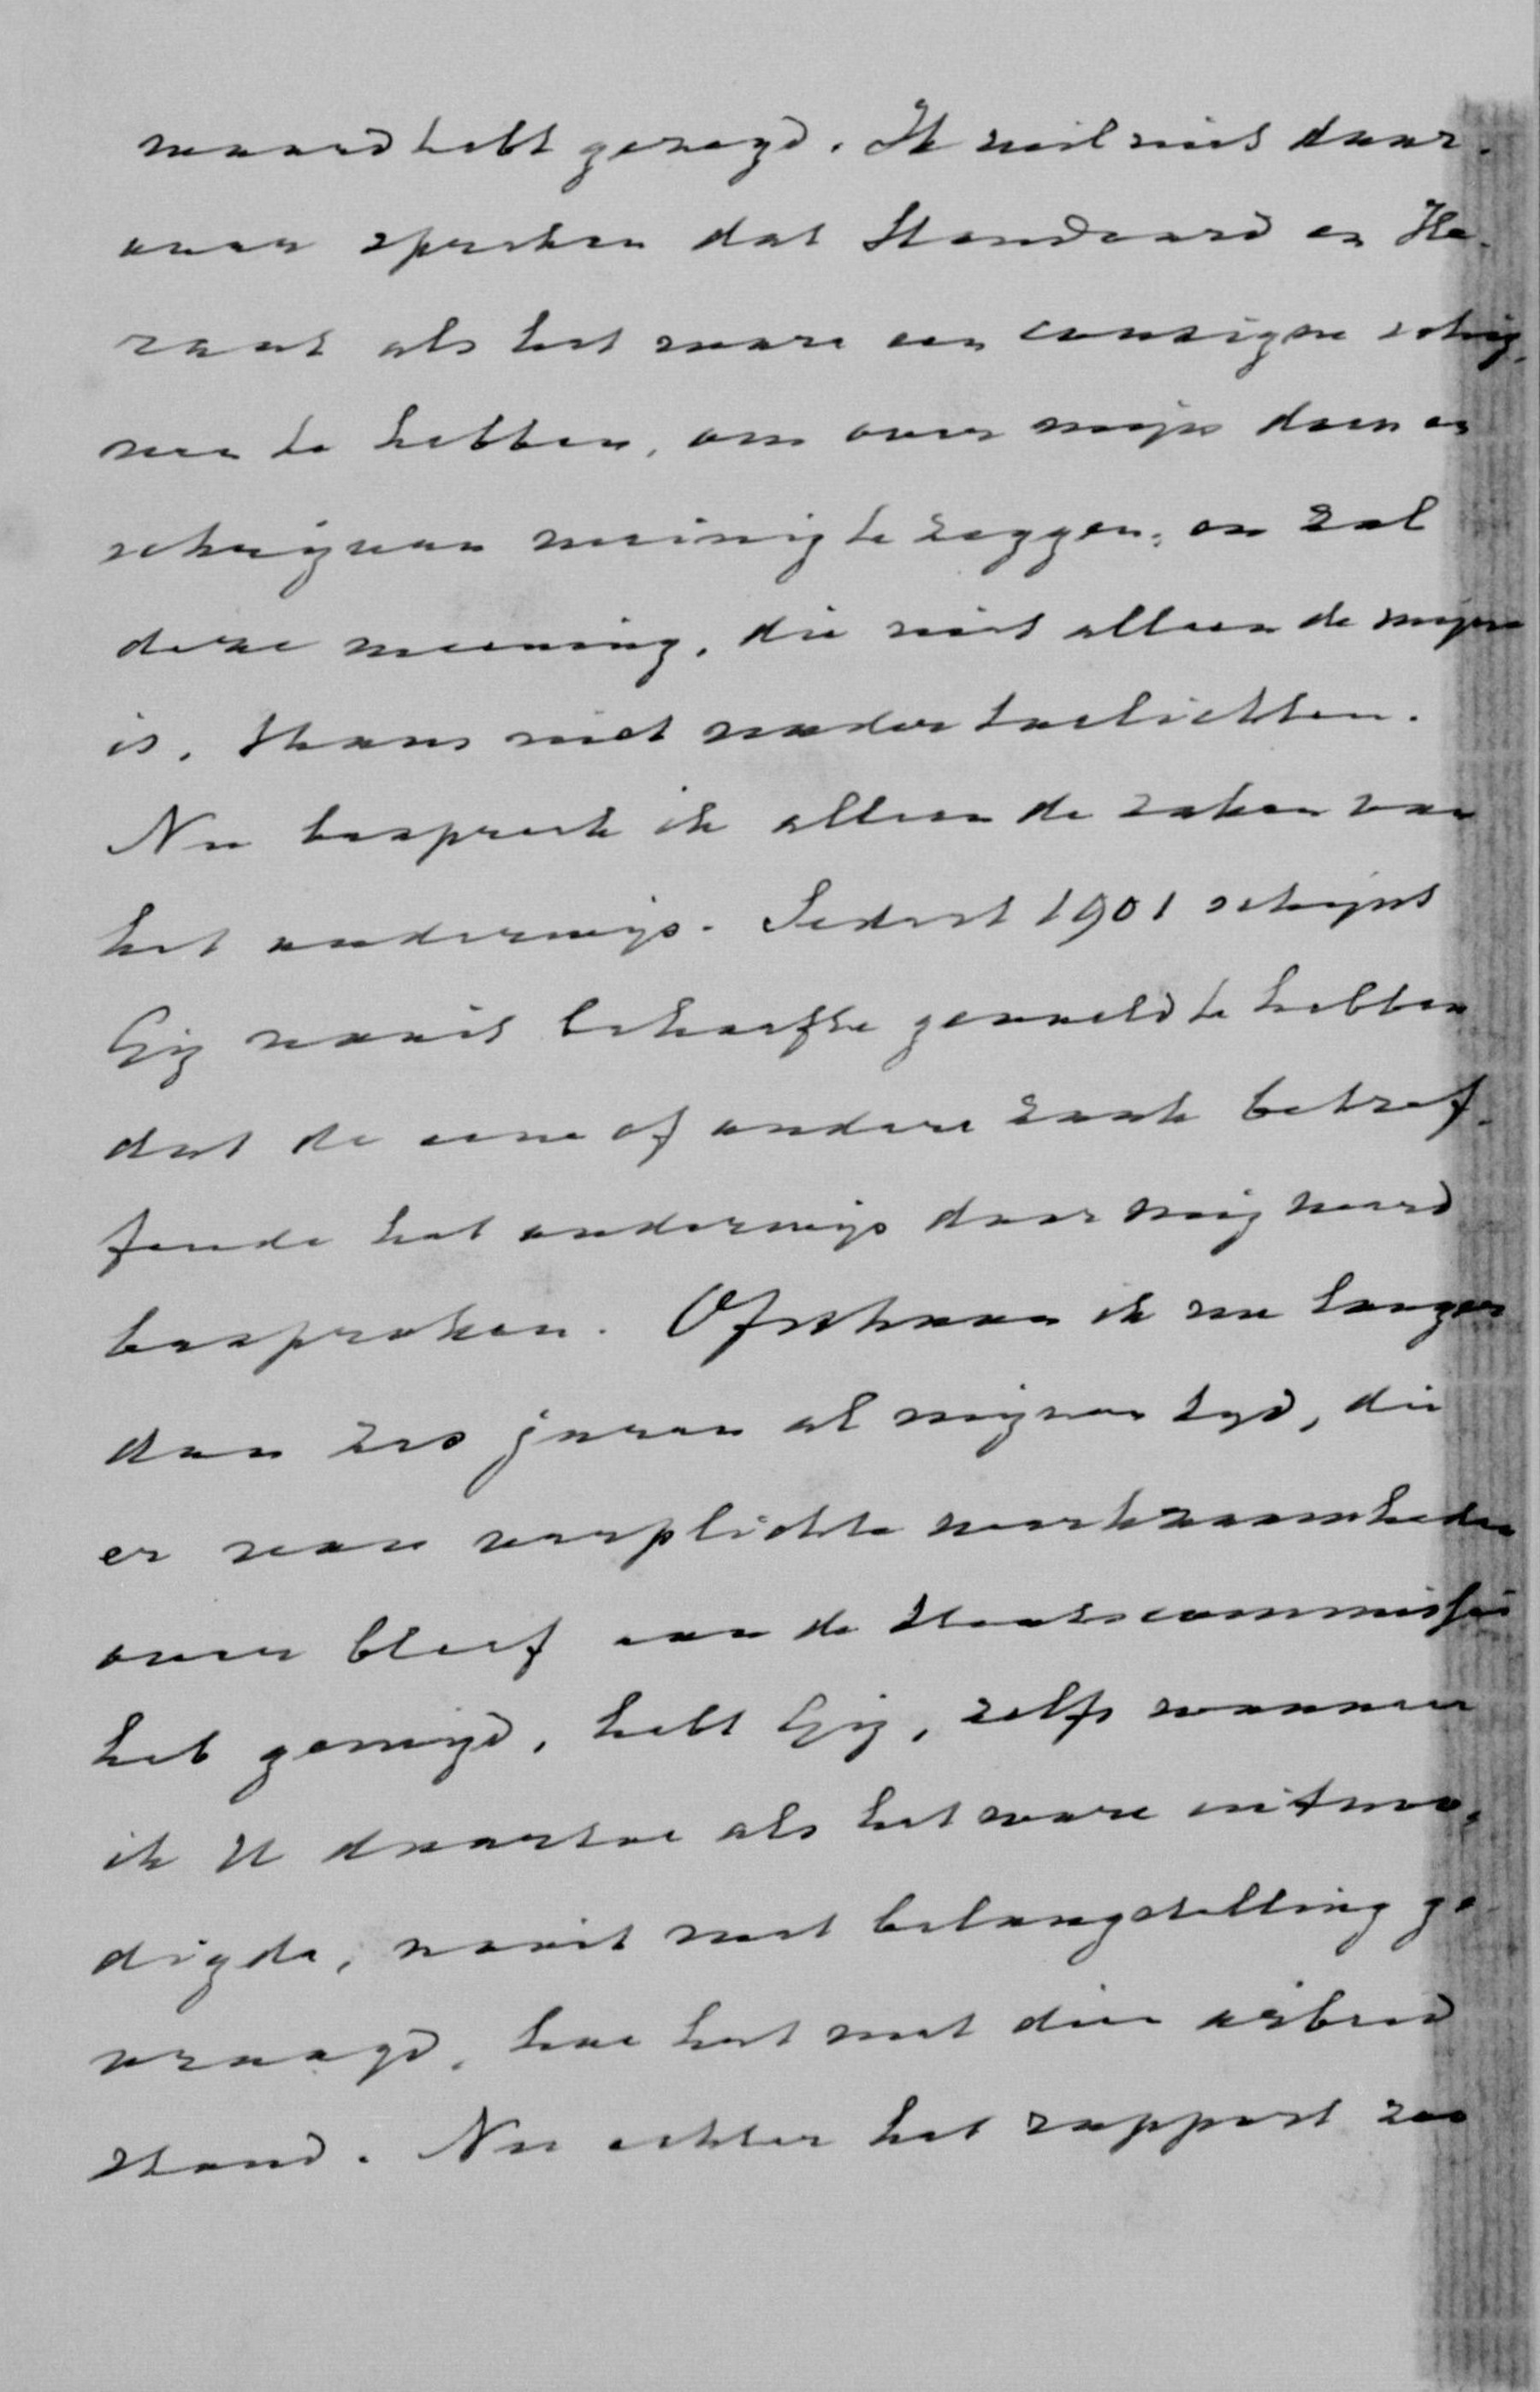 waard hebt gezegd. Ik wil niet daar-
over spreken dat Standaard en He-
raut als het ware een consigne schij-
nen te hebben, om over mijn doen en
schrijven weinig te zeggen; en zal
deze meening, die niet alleen de mijne
is, thans niet nader toelichten.
Nu bespreek ik alleen de zaken van
het onderwijs. Sedert 1901 schijnt
Gij nooit behoefte gevoeld te hebben
dat de eene of andere zaak betref-
fende het onderwijs door mij werd
besproken. Ofschoon ik nu langer
dan zes jaren al mijnen tijd, die
er van verplichte werkzaamheden
over bleef aan de Staatscommissie
heb gewijd, hebt Gij, zelfs wanneer
ik U daartoe als het ware uitnoo-
digde, nooit met belangstelling ge-
vraagd, hoe het met dien arbeid
stond. Nu echter het rapport zoo